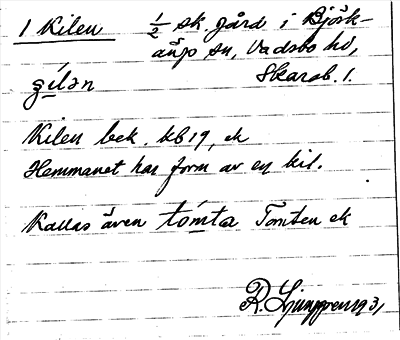 1 Kilen ½ sk. gård i Björk-
äng sn, Vadsbo hd,
Skarab. l.
z̲i̇lən
Kilen bek. kb 19, ek
Hemmanet har form av en kil.
Kallas även tomta Tomten ek
R. Ljunggren 1931